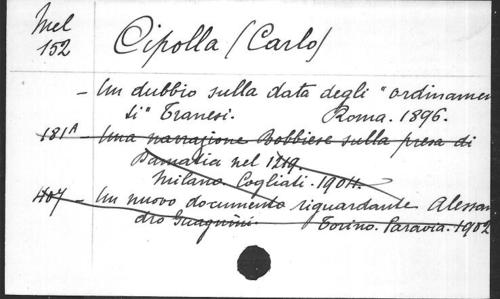 Mel
152
Cipolla (Carlo)
- Un dubbio sulla data degli "ordinamen
ti" Tranesi. Roma. 1896.
181A - Una narrazione Bobbiese sulla presa di
Damatia nel 1219
Milano. Cogliati. 1904.
407 - Un nuovo documento riguardante Alessan
dro Guagnini. Torino. Paravia. 1902